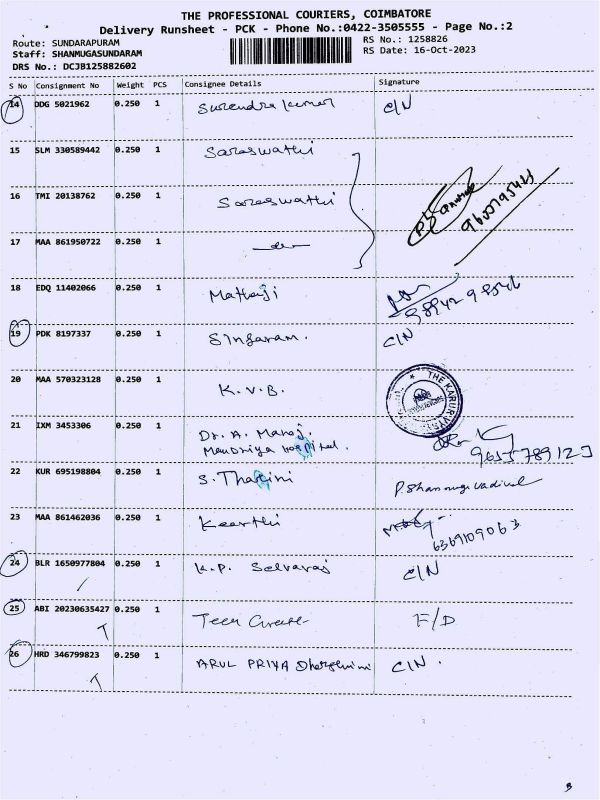 THE PROFESSIONAL COURIERS, COIMBATORE
Delivery Runsheet - PCK - Phone No.:0422-3505555 - Page No.:2
Route: SUNDARAPURAM RS No.: 1258826
Staff: SHANMUGASUNDARAM RS Date: 16-Oct-2023
DRS No.: DCJB125882602
S No Consignment No Weight PCS Consignee Details Signature
14 DDG 5021962 0.250 1 Surendra kumar C/N
15 SLM 330589442 0.250 1 Saraswathi
16 TMI 20138762 0.250 1 Saraswathi
17 MAA 861950722 0.250 1
18 EDQ 11402066 0.250 1 Mathaji
19 PDK 8197337 0.250 1 Singaram. C/N
20 MAA 570323128 0.250 1 K.V.B. THE KARUR VYSYA
21 IXM 3453306 0.250 1 Dr. A. Manoj.
Hospital. 9655789123
22 KUR 695198804 0.250 1 S. Tharini P. Shanmugavadivel
23 MAA 861462036 0.250 1 Keerthi
6369109063
24 BLR 1650977804 0.250 1 K.P. Selvaraj C/N
25 ABI 20230635427 0.250 1 Teen F/D
26 HRD 346799823 0.250 1 ARUL PRIYA Dharshini C/N.